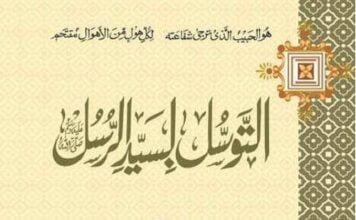 هو الحبيب الذي ترجى شفاعته لكل هول من الأهوال مقتحم
التوسل بسيد الرسل صلى الله عليه وسلم